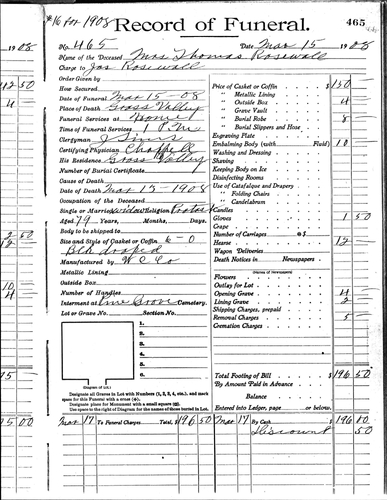 #16 For 1908
Record of Funeral.
465
1908
No. 465 Date Mar 15 1908
Name of the Deceased Mrs Thomas Rosewall
Charge to Jas Rosewall
Order Given by
How Secured
Date of Funeral Mar 15-08
Place of Death Grass Valley
Funeral Services at Home
Time of Funeral Services 1 P.M.
Clergyman J Sims
Certifying Physician Chappell
His Residence Grass Valley
Number of Burial Certificate
Cause of Death
Date of Death Mar 13-1908
Occupation of the Deceased
Single or Married Widow Religion
Aged 79 Years, Months, Days.
Body to be shipped to
Size and Style of Casket or Coffin 6-0
Blk draped
Manufactured by W C Co
Metallic Lining
Outside Box
Number of Handles
Interment at Pine Grove Cemetery.
Lot or Grave No. Section No.
1.
2.
3.
4.
5.
6.
(Diagram of Lot.)
Designate all Graves in Lot with Numbers (1, 2, 3, 4, etc.) and mark
spot for this Funeral with a
Designate place for Monument with a small square
Use space to the right of Diagram for the names of those buried in Lot.
Price of Casket or Coffin $130
" Metallic Lining
" Outside Box 4
" Grave Vault
" Burial Robe 8
" Burial Slippers and Hose
Engraving Plate
Embalming Body (with Fluid) 10
Washing and Dressing
Shaving
Keeping Body on Ice
Disinfecting Rooms
Use of Catafalque and Drapery
" Folding Chairs
" Candelabrum
Candles
Gloves 1 50
Crape
Number of Carriages @ $
Hearse 12
Wagon Deliveries
Death Notices in Newspapers
(Names of Newspapers)
Flowers
Outlay for Lot
Opening Grave 4
Lining Grave 2
Shipping Charges, prepaid
Removal Charges 5
Cremation Charges
Total Footing of Bill $196 50
By Amount Paid in Advance
Balance
Entered into Ledger, page or below.
Mar 17 To Funeral Charges Total, $196 50 Mar 17 By Cash 196 00
Discount 50